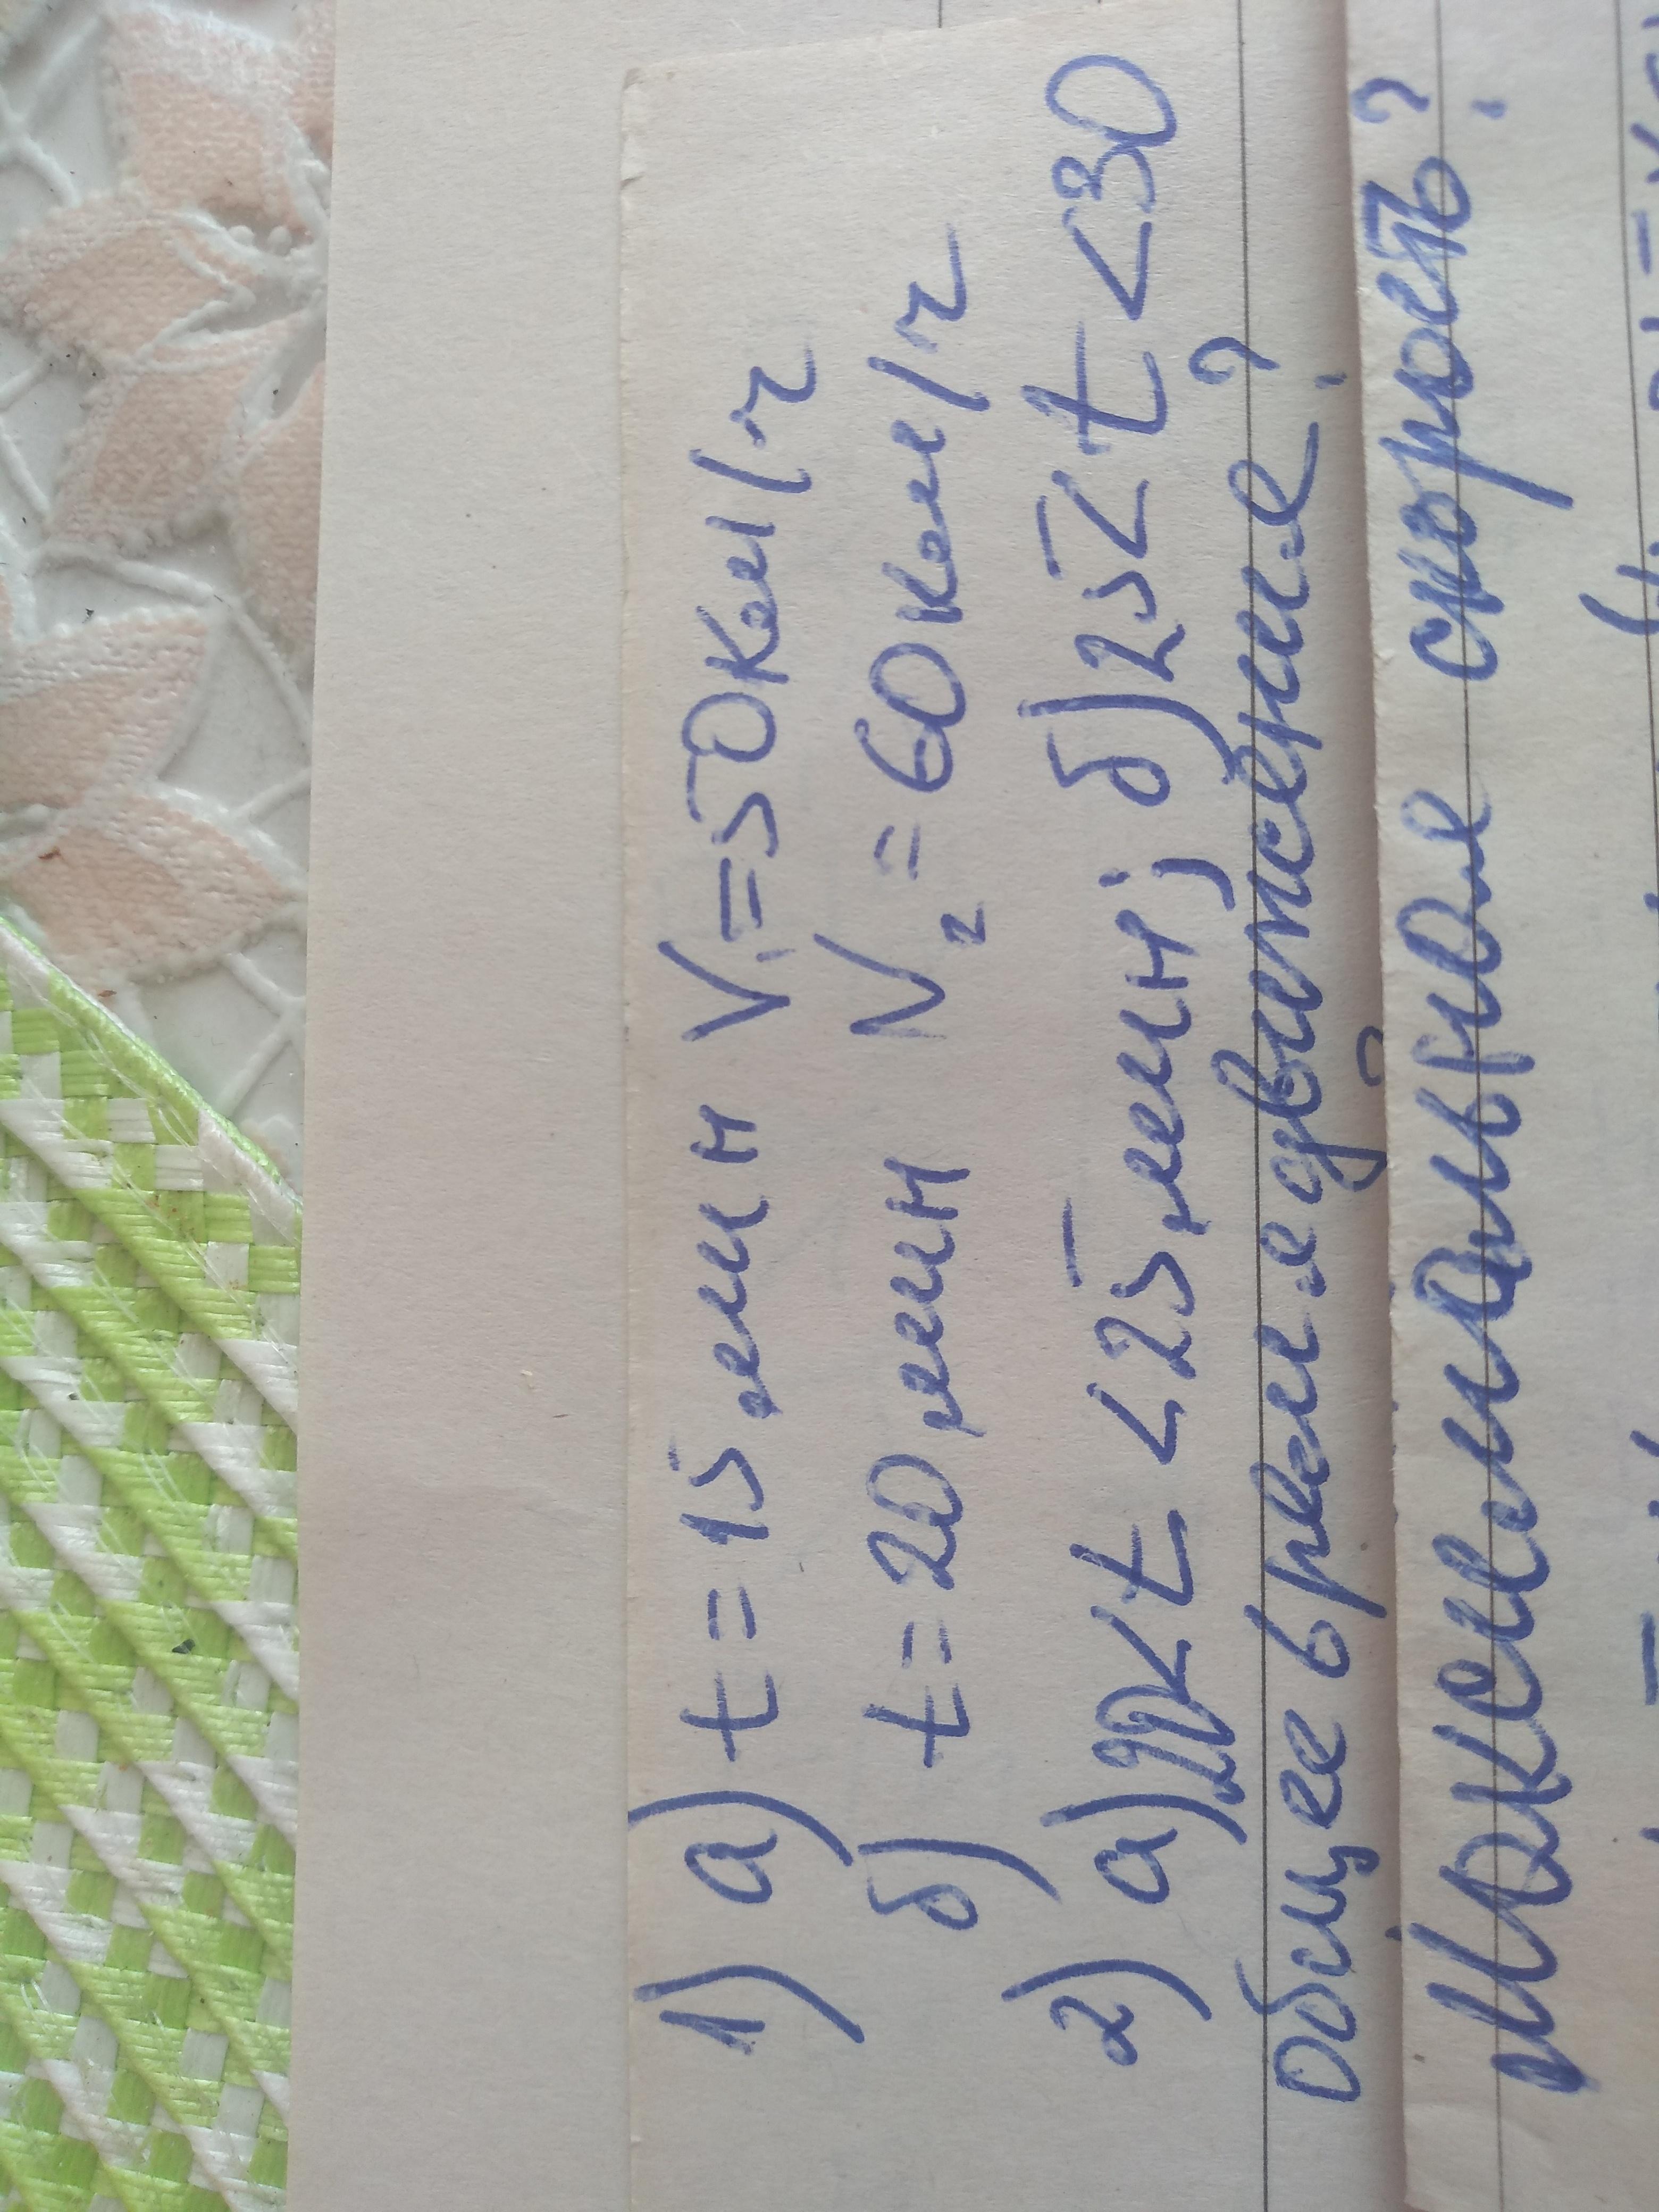 1) а) t = 15 мин V₁ = 50 км/ч
б) t = 20 мин V₂ = 60 км/ч
2) а) t < 25 мин; б) 25 < t < 30
Общее время движения?
Максимальная скорость?